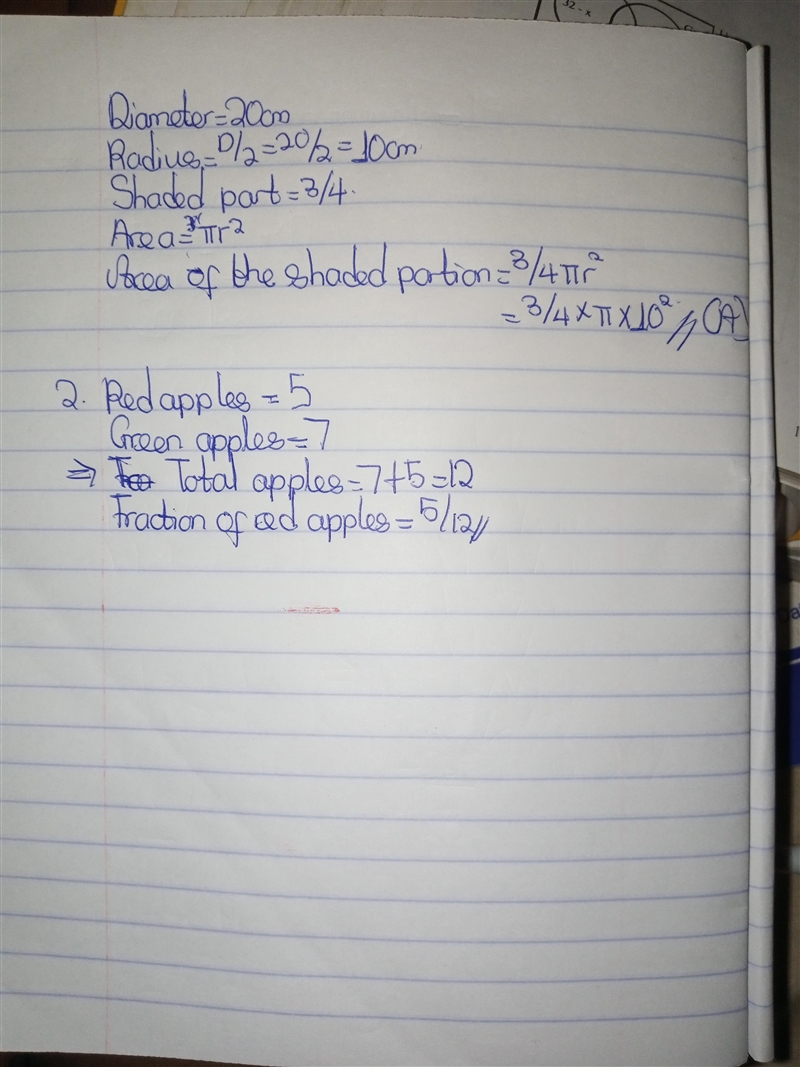 32-x
Diameter=20cm
Radius=D/2=20/2=10cm
Shaded part=3/4.
Area=πr²
Area of the shaded portion=3/4πr²
=3/4×π×10²// (A)
2. Red apples=5
Green apples=7
⇒ Total apples=7+5=12
Fraction of red apples=5/12//